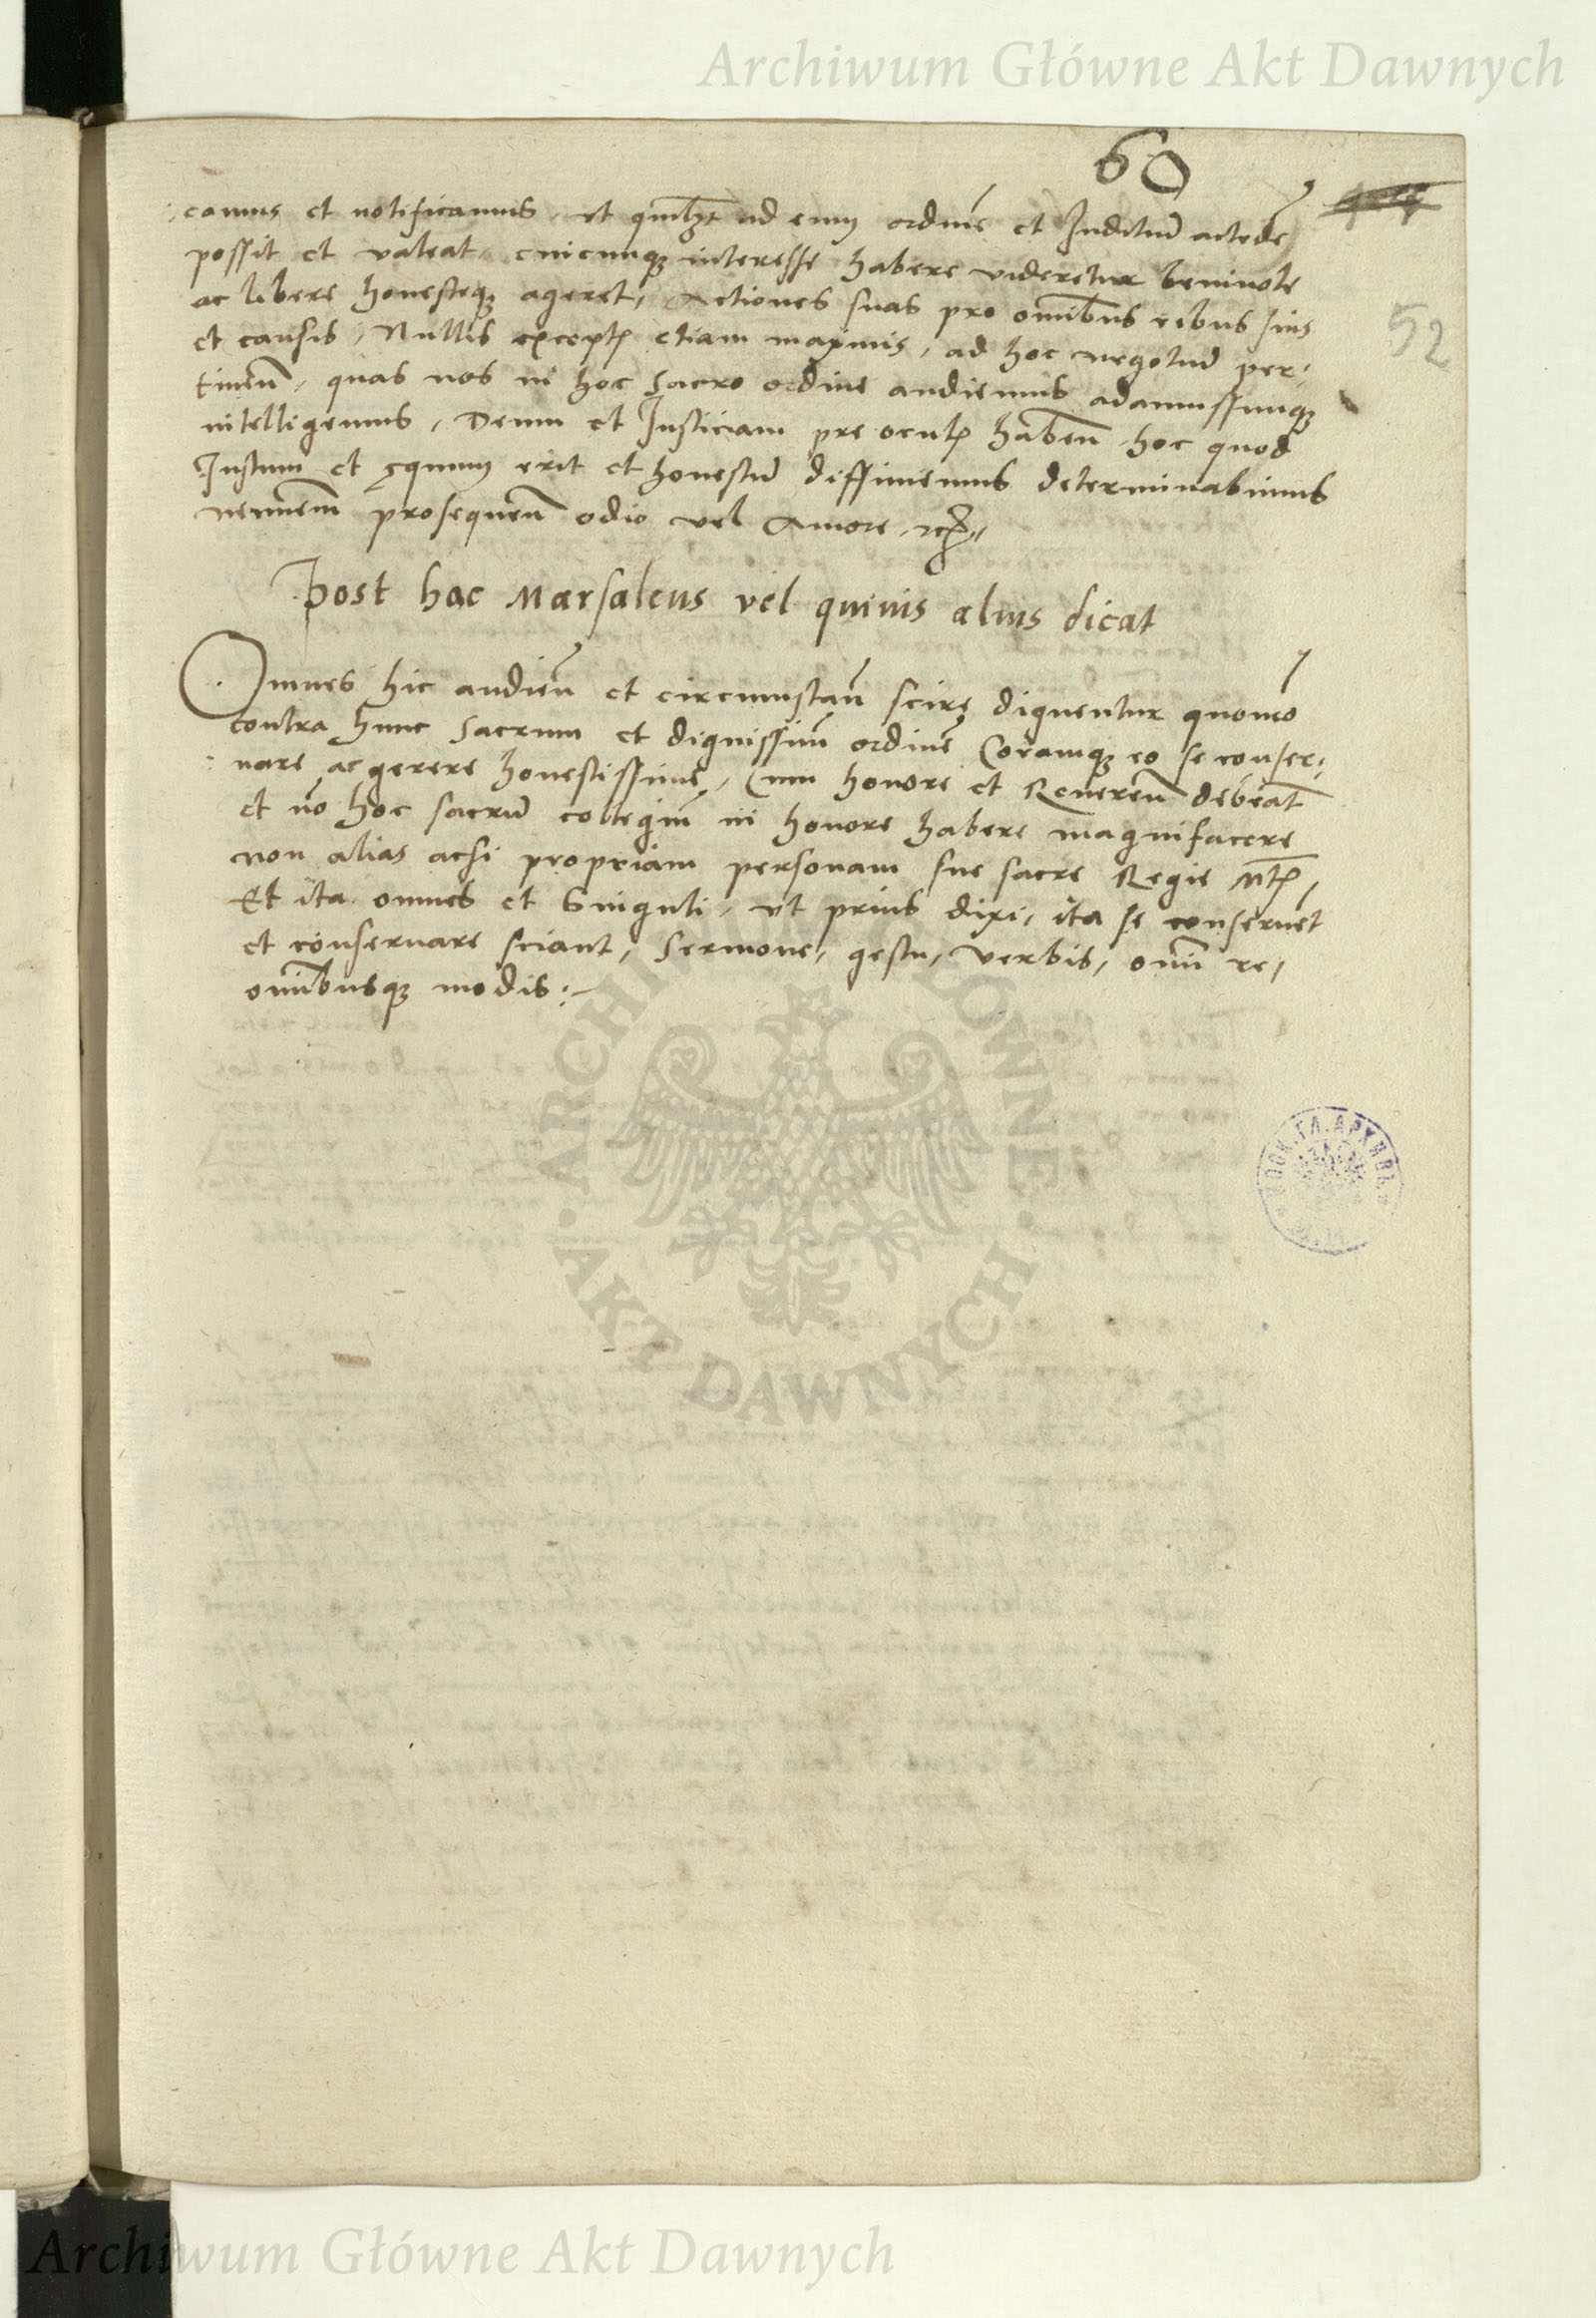 Archiwum Główne Akt Dawnych
60
52
camus et notificamus, ut quilibet ad eum ordinē et Juditiū accedē
possit et valeat, cuicumq; interesse habere videretur benivole
ac libere honesteq; ageret, Actiones suas pro omībus rebus suis
et causis, Nullis except etiam maximis, ad hoc negotiū per:
tineñ, quas nos in hoc Sacro ordine audiemus adamussimq;
intelligemus, Deum et Justiciam pre ocul habeñ hoc quod
Justum et ęquum erit et honestū diffiniemus determinabimus
neminem prosequeñ odio vel Amore, etc.
Post hac Marsalcus vel quivis alius dicat
Omnes hic audieñ et circumstañ scire dignentur quomō
contra hunc Sacrum et dignissimū ordinē Coramq; eo se conser:
vare ac gerere honestissime, Cum honore et Revereñ debeāt
et vō hoc sacrū collegiū in honore habere magnifacere
non alias acsi propriam personam sue sacre Regie Mt,
Et ita omnes et Singuli, ut prius dixi, ita se conservēt
et conservare sciant, Sermone, gestu, verbis, omī re,
omībusq; modis:-
ARCHIWUM GŁÓWNE · AKT DAWNYCH ·
ГЛ. АРХИВЪ
Archiwum Główne Akt Dawnych